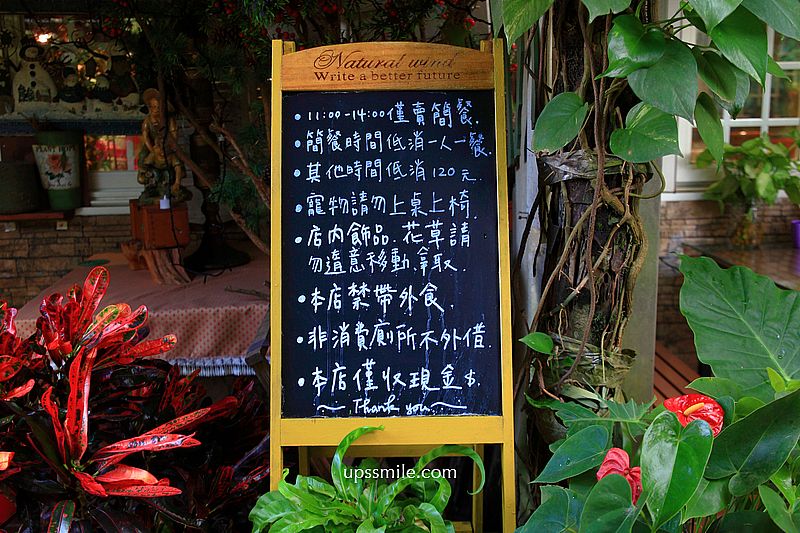 Natural wind
Write a better future
• 11:00-14:00僅賣簡餐.
• 簡餐時間低消一人一餐.
• 其他時間低消120元.
• 寵物請勿上桌上椅.
• 店內飾品.花草請
勿隨意移動.拿取.
• 本店禁帶外食.
• 非消費廁所不外借.
• 本店僅收現金$.
～Thank you～
PLANT HOPE
upssmile.com